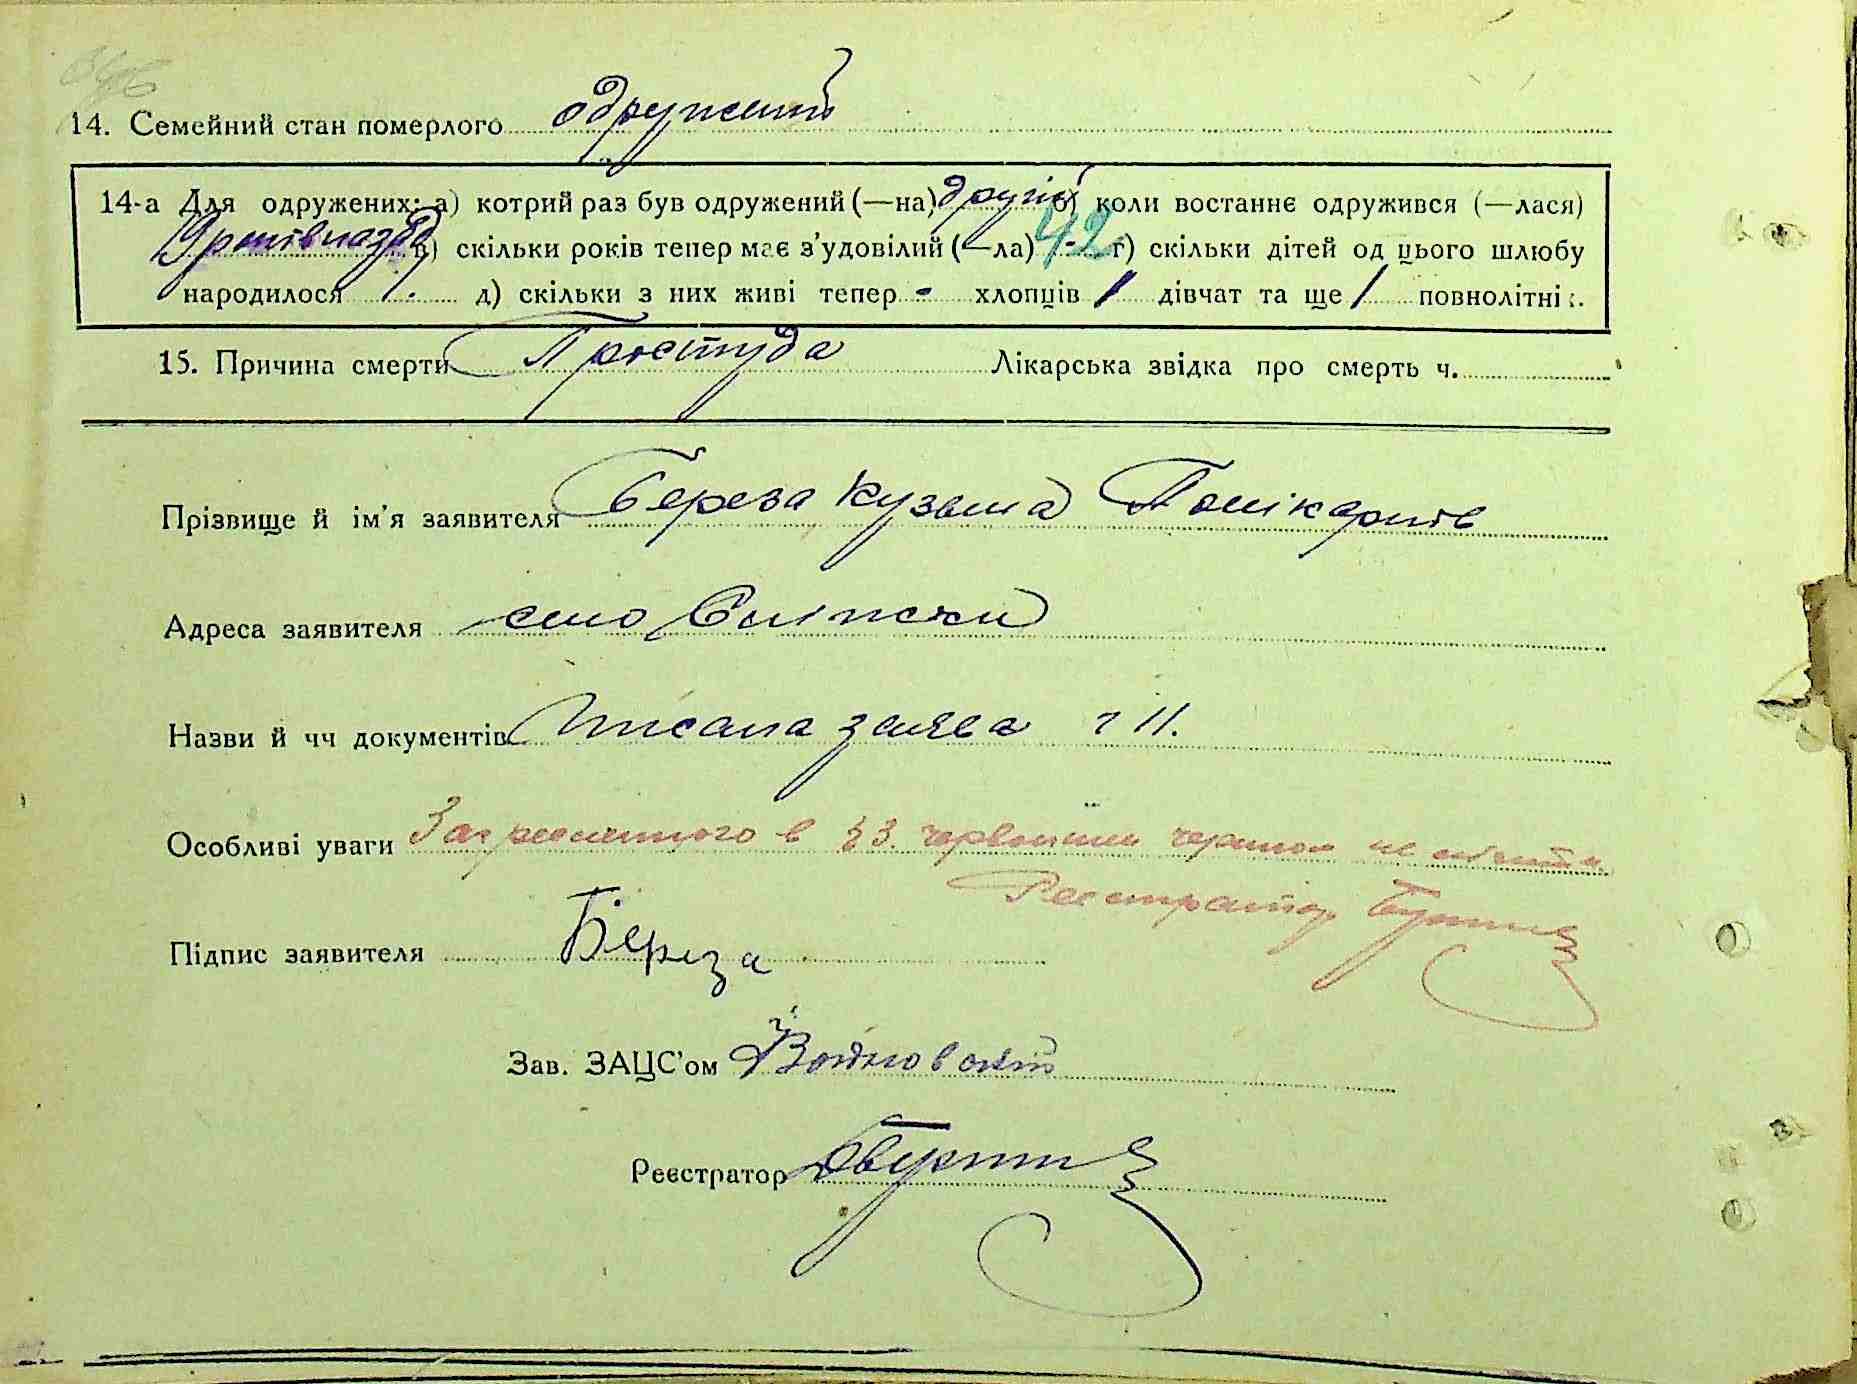 14. Семейний стан померлого одружений
14-а Для одружених: а) котрий раз був одружений (—на) другий б) коли востаннє одружився (—лася)
9 років назад в) скільки років тепер має з'удовілий (—ла) 42 г) скільки дітей од цього шлюбу
народилося 1. д) скільки з них живі тепер - хлопців 1 дівчат та ще 1 повнолітніх.
15. Причина смерти Простуда Лікарська звідка про смерть ч.
Прізвище й ім'я заявителя Береза Кузьма Полікарпів
Адреса заявителя село
Назви й чч документів Писана заява
Особливі уваги Закресленого в § 3. червоним чернилом не
Реєстратор
Підпис заявителя Береза
Зав. ЗАЦС'ом Войновський
Реєстратор